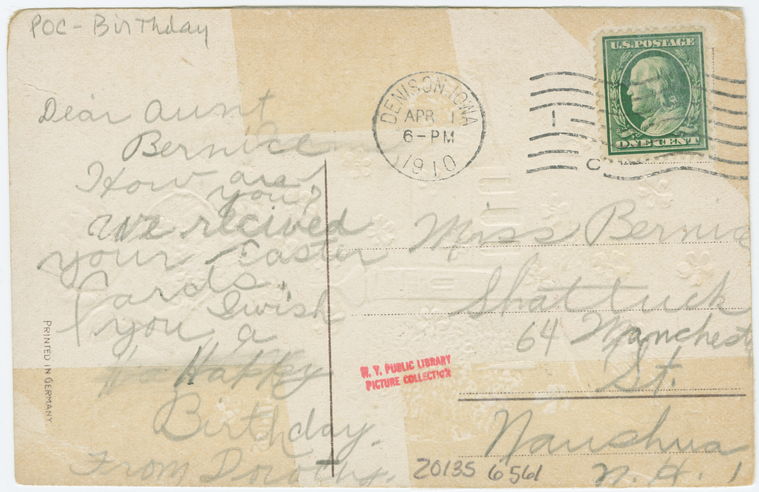 POC - Birthday
U.S. POSTAGE
ONE CENT
DENISON, IOWA
APR 1
6-PM
1910
Dear Aunt
Bernice
How are
you?
We recived
your Easter
Cards.
I wish
you a
Happy
Birthday.
From Dorothy.
Miss Bernice
Shattuck
64 Manchest
St.
Naushua
N.H.
PRINTED IN GERMANY
N. Y. PUBLIC LIBRARY
PICTURE COLLECTION
20135 6561